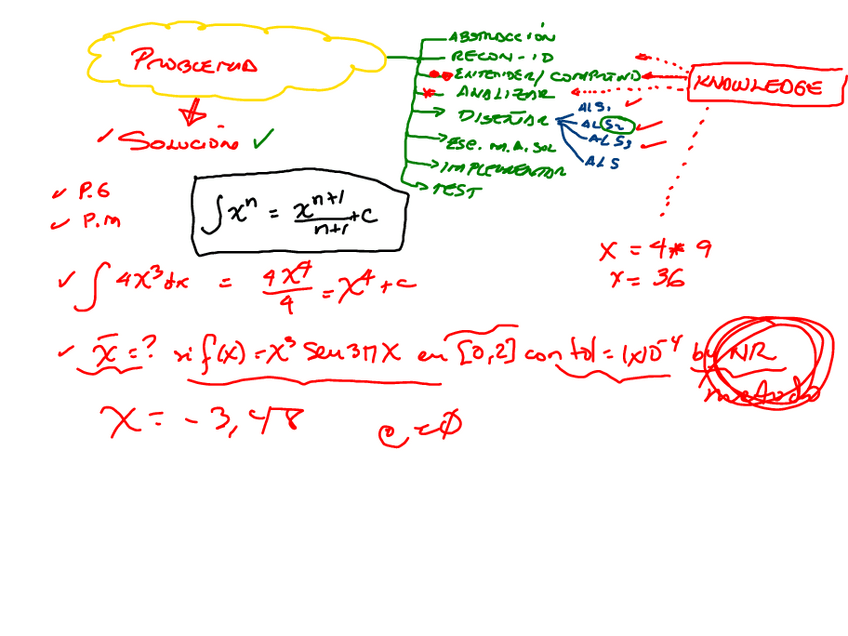 PROBLEMA
SOLUCIÓN
ABSTRACCIÓN
RECON-ID
ENTENDER/COMPREND
ANALIZAR
DISEÑAR
ALS1
ALS2
ALS3
ALS
ESC. M.A. SOL
IMPLEMENTAR
TEST
KNOWLEDGE
P.G
P.M
∫x^n = x^(n+1)/(n+1) + C
x = 4 * 9
x = 36
∫4x^3 dx = 4x^4/4 = x^4 + c
x̄ = ? si f(x) = x^3 sen 3πx en [0,2] con tol = 1x10^-4 by NR
método
x = -3,48 e ≈ ∅